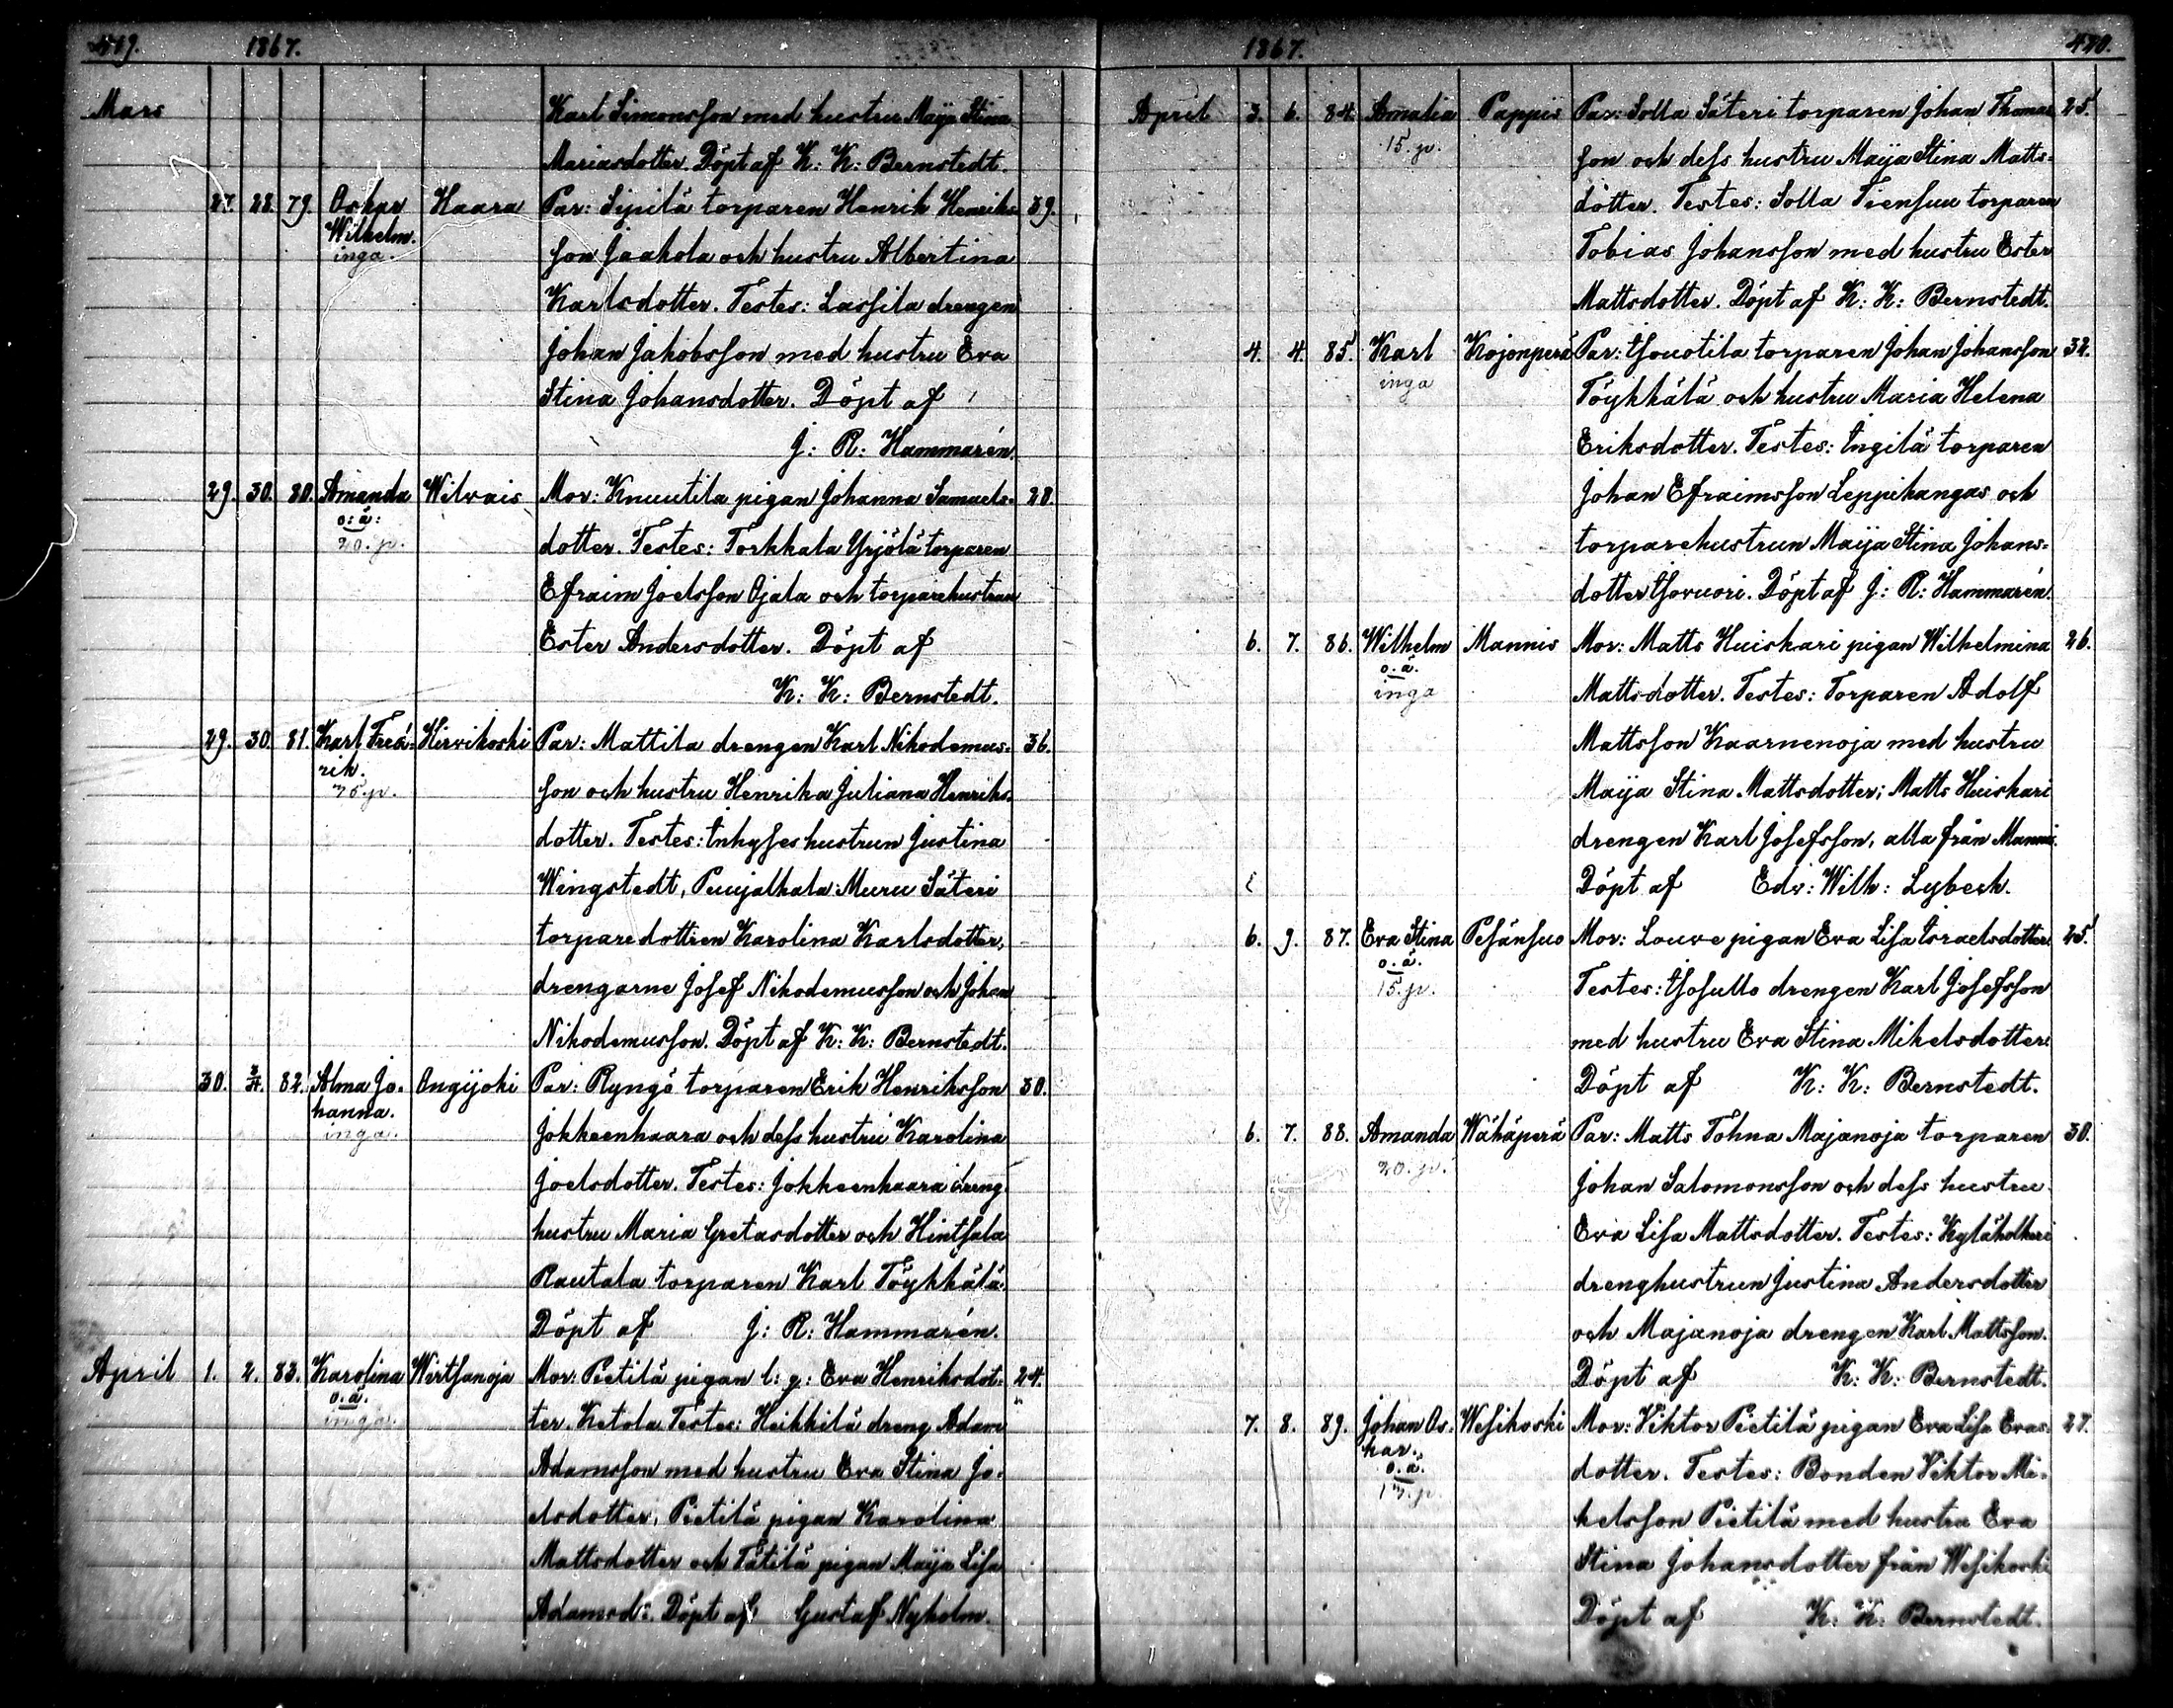 419. 1867.
Mars Karl Simonsson med hustru Maija Stina
Mariasdotter. Döpt af K: K: Bernstedt.
27. 28. 79. Oskar Haara Par: Sipilä torparen Henrik Henriks- 39.
Wilhelm.
inga. son Jaakola och hustru Albertina
Karlsdotter. Testes: Lassila drengen
Johan Jakobsson med hustru Eva
Stina Johansdotter. Döpt af
J: R: Hammarén.
29. 30. 80. Amanda Wilvais Mor: Knuutila pigan Johanna Samuels- 28.
o: ä:
20. p. dotter. Testes: Torkkala Yrjölä torparen
Efraim Joelsson Ojala och torparehustrun
Ester Andersdotter. Döpt af
K: K: Bernstedt.
29. 30. 81. Karl Fred- Hirvikoski Par: Mattila drengen Karl Nikodemus- 36.
rik.
75. p. son och hustru Henrika Juliana Henriks-
dotter. Testes: Inhyses hustrun Justina
Wingstedt, Punjalkala Muru Säteri
torparedottren Karolina Karlsdotter,
drengarne Josef Nikodemusson och Johan
Nikodemusson. Döpt af K: K: Bernstedt.
30. 3/4. 82. Alma Jo- Ongijoki Par: Ryngö torparen Erik Henriksson 30.
hanna.
inga. Jokkeenhaara och dess hustru Karolina
Joelsdotter. Testes: Jokkeenhaara dreng-
hustru Maria Gretasdotter och Hintsala
Rautala torparen Karl Töykkälä.
Döpt af J: R: Hammarén.
April 1. 2. 83. Karolina Wirtsanoja Mor: Pietilä pigan l: g: Eva Henriksdot- 24.
o. ä.
inga. ter Ketola Testes: Heikkilä dreng Adam
Adamsson med hustru Eva Stina Jo-
elsdotter, Pietilä pigan Karolina
Mattsdotter och Tätilä pigan Maija Lisa
Adamsd: Döpt af Gustaf Nyholm.
1867. 420.
April 3. 6. 84. Amalia Pappis Par: Solla Säteri torparen Johan Thomas- 25.
15. p. son och dess hustru Maija Stina Matts-
dotter. Testes: Solla Tiensuu torparen
Tobias Johansson med hustru Ester
Mattsdotter. Döpt af K: K: Bernstedt.
4. 4. 85. Karl Kojonperä Par: Isouotila torparen Johan Johansson 32.
inga Töykkälä och hustru Maria Helena
Eriksdotter. Testes: Ingilä torparen
Johan Efraimsson Leppikangas och
torparehustrun Maija Stina Johans-
dotter Isovuori. Döpt af J: R: Hammarén.
6. 7. 86. Wilhelm Mannis Mor: Matts Huiskari pigan Wilhelmina 26.
o. ä.
inga Mattsdotter. Testes: Torparen Adolf
Mattsson Kaarnenoja med hustru
Maija Stina Mattsdotter; Matts Huiskari
drengen Karl Josefsson, alla från Mannis.
Döpt af Edv: Wilh: Lybeck.
6. 9. 87. Eva Stina Pesänsuo Mor: Louve pigan Eva Lisa Israelsdotter. 25.
o. ä.
15. p. Testes: Isosullo drengen Karl Josefsson
med hustru Eva Stina Mikelsdotter.
Döpt af K: K: Bernstedt.
6. 7. 88. Amanda Wähäperä Par: Matts Tohna Majanoja torparen 30.
20. p. Johan Salomonsson och dess hustru
Eva Lisa Mattsdotter. Testes: Kyläholkeri
drenghustrun Justina Andersdotter
och Majanoja drengen Karl Mattsson.
Döpt af K: K: Bernstedt.
7. 8. 89. Johan Os- Wesikoski Mor: Viktor Pietilä pigan Eva Lisa Evas- 27.
kar.
o. ä. dotter. Testes: Bonden Viktor Mi-
kelsson Pietilä med hustru Eva
Stina Johansdotter från Wesikoski
Döpt af K: K: Bernstedt.